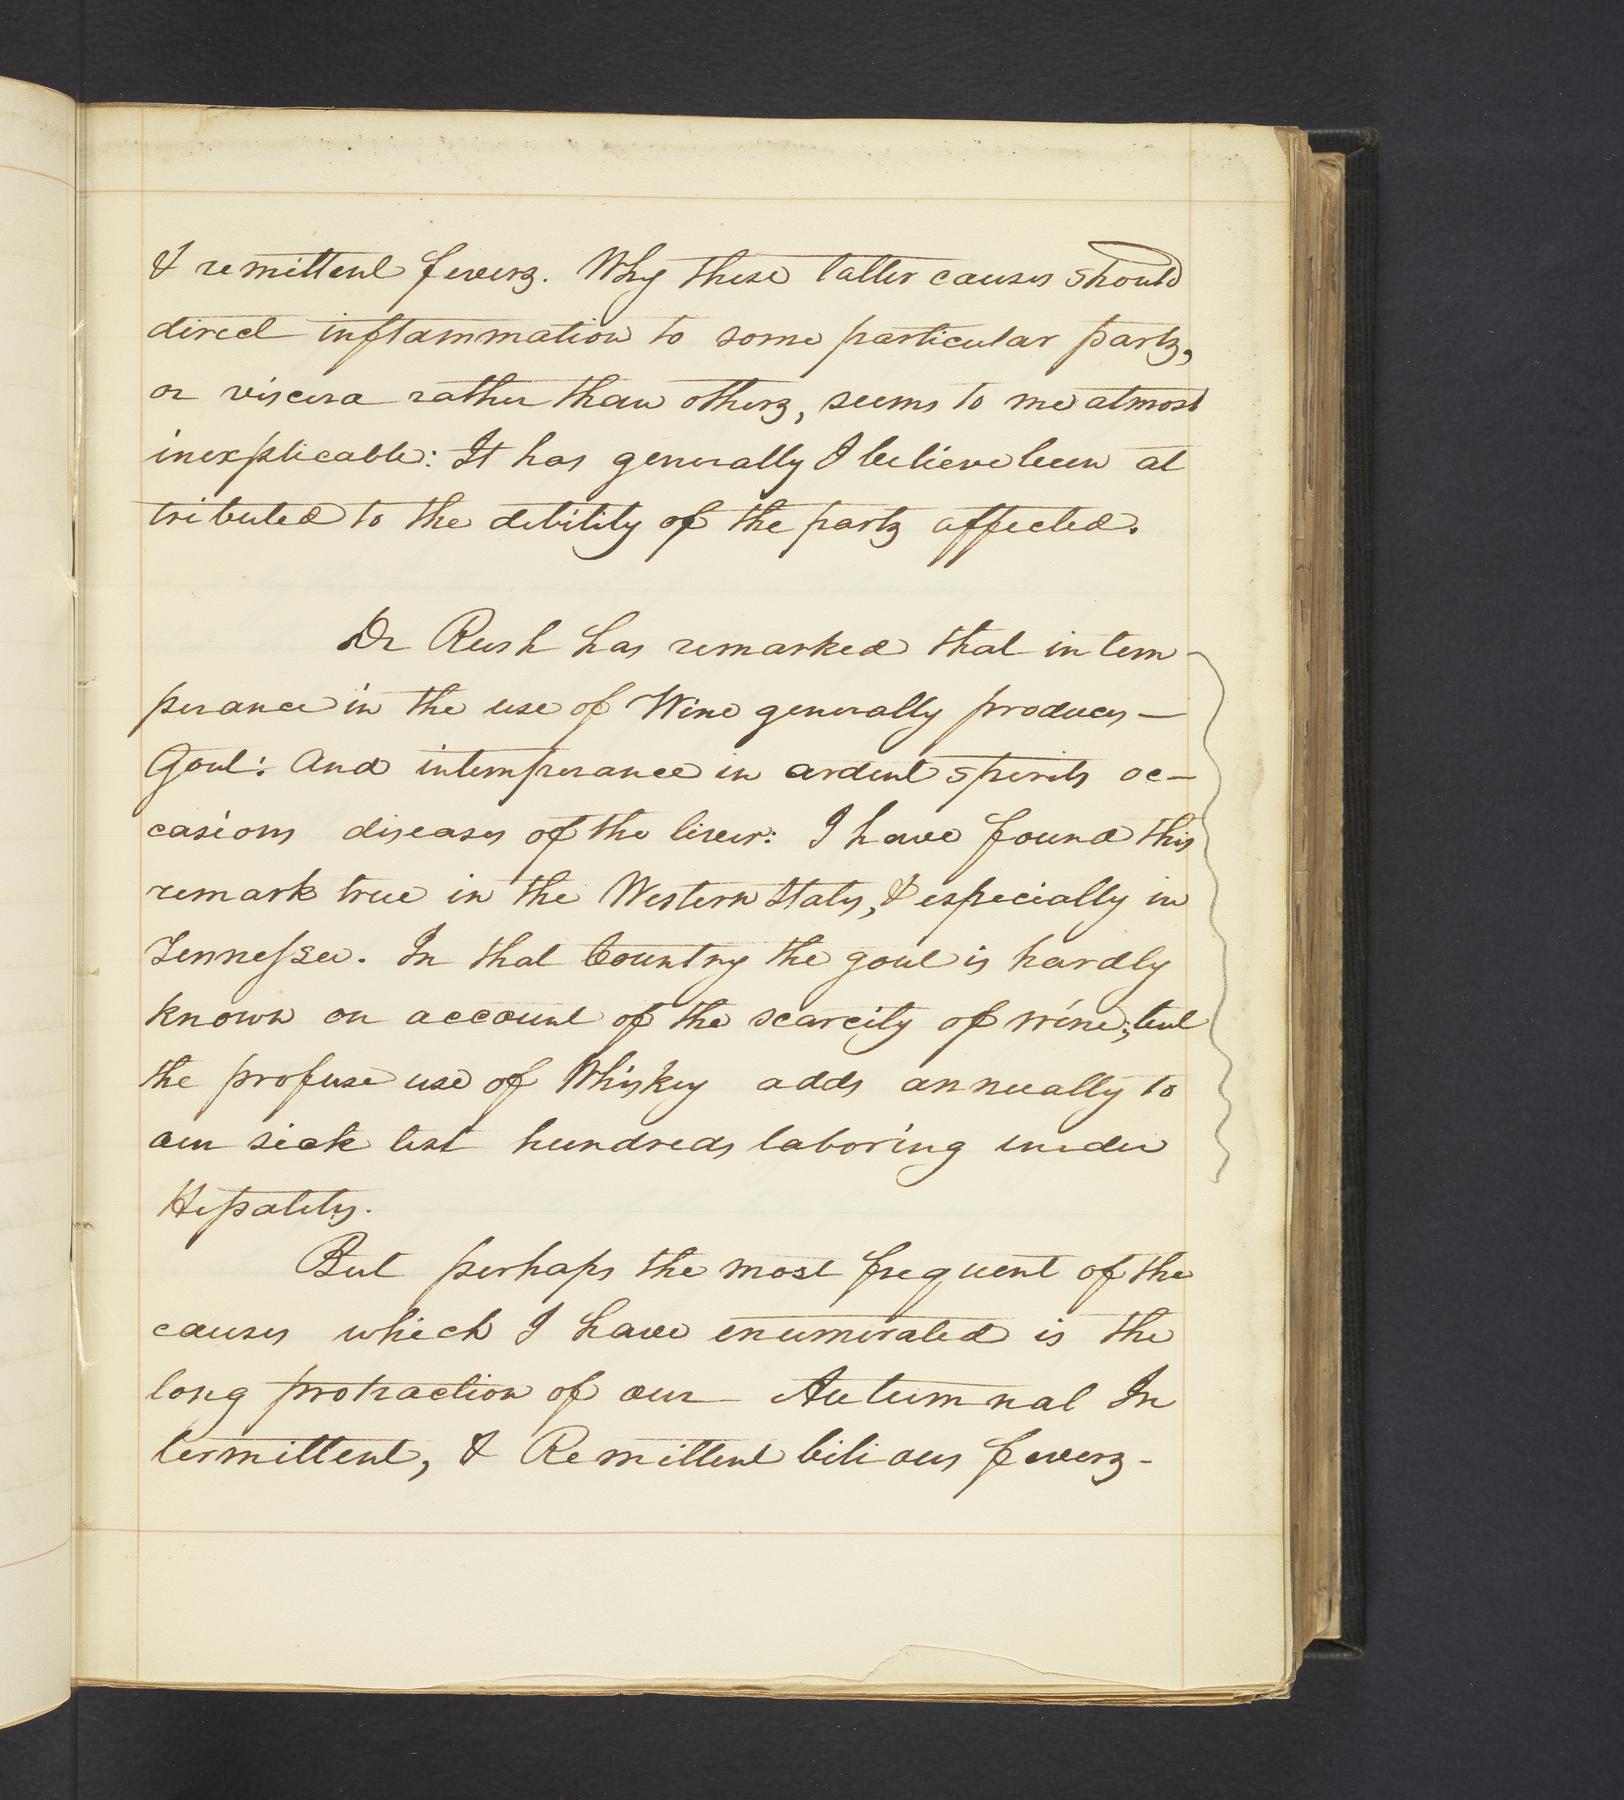 & remittent fevers. Why these latter causes should
direct inflammation to some particular parts,
or viscera rather than others, seems to me almost
inexplicable: It has generally I believe been at
tributed to the debility of the parts affected.
Dr Rush has remarked that intem-
perance in the use of Wine generally produces—
Gout: And intemperance in ardent spirits oc—
casions diseases of the liver: I have found this
remark true in the Western States, & especially in
Tennessee. In that Country the gout is hardly
known on account of the scarcity of wine; but
the profuse use of Whiskey adds annually to
our sick list hundreds laboring under
Hepatitis.
But perhaps the most frequent of the
causes which I have enumerated is the
long protraction of our Autumnal In
termittent, & Remittent bilious fevers-